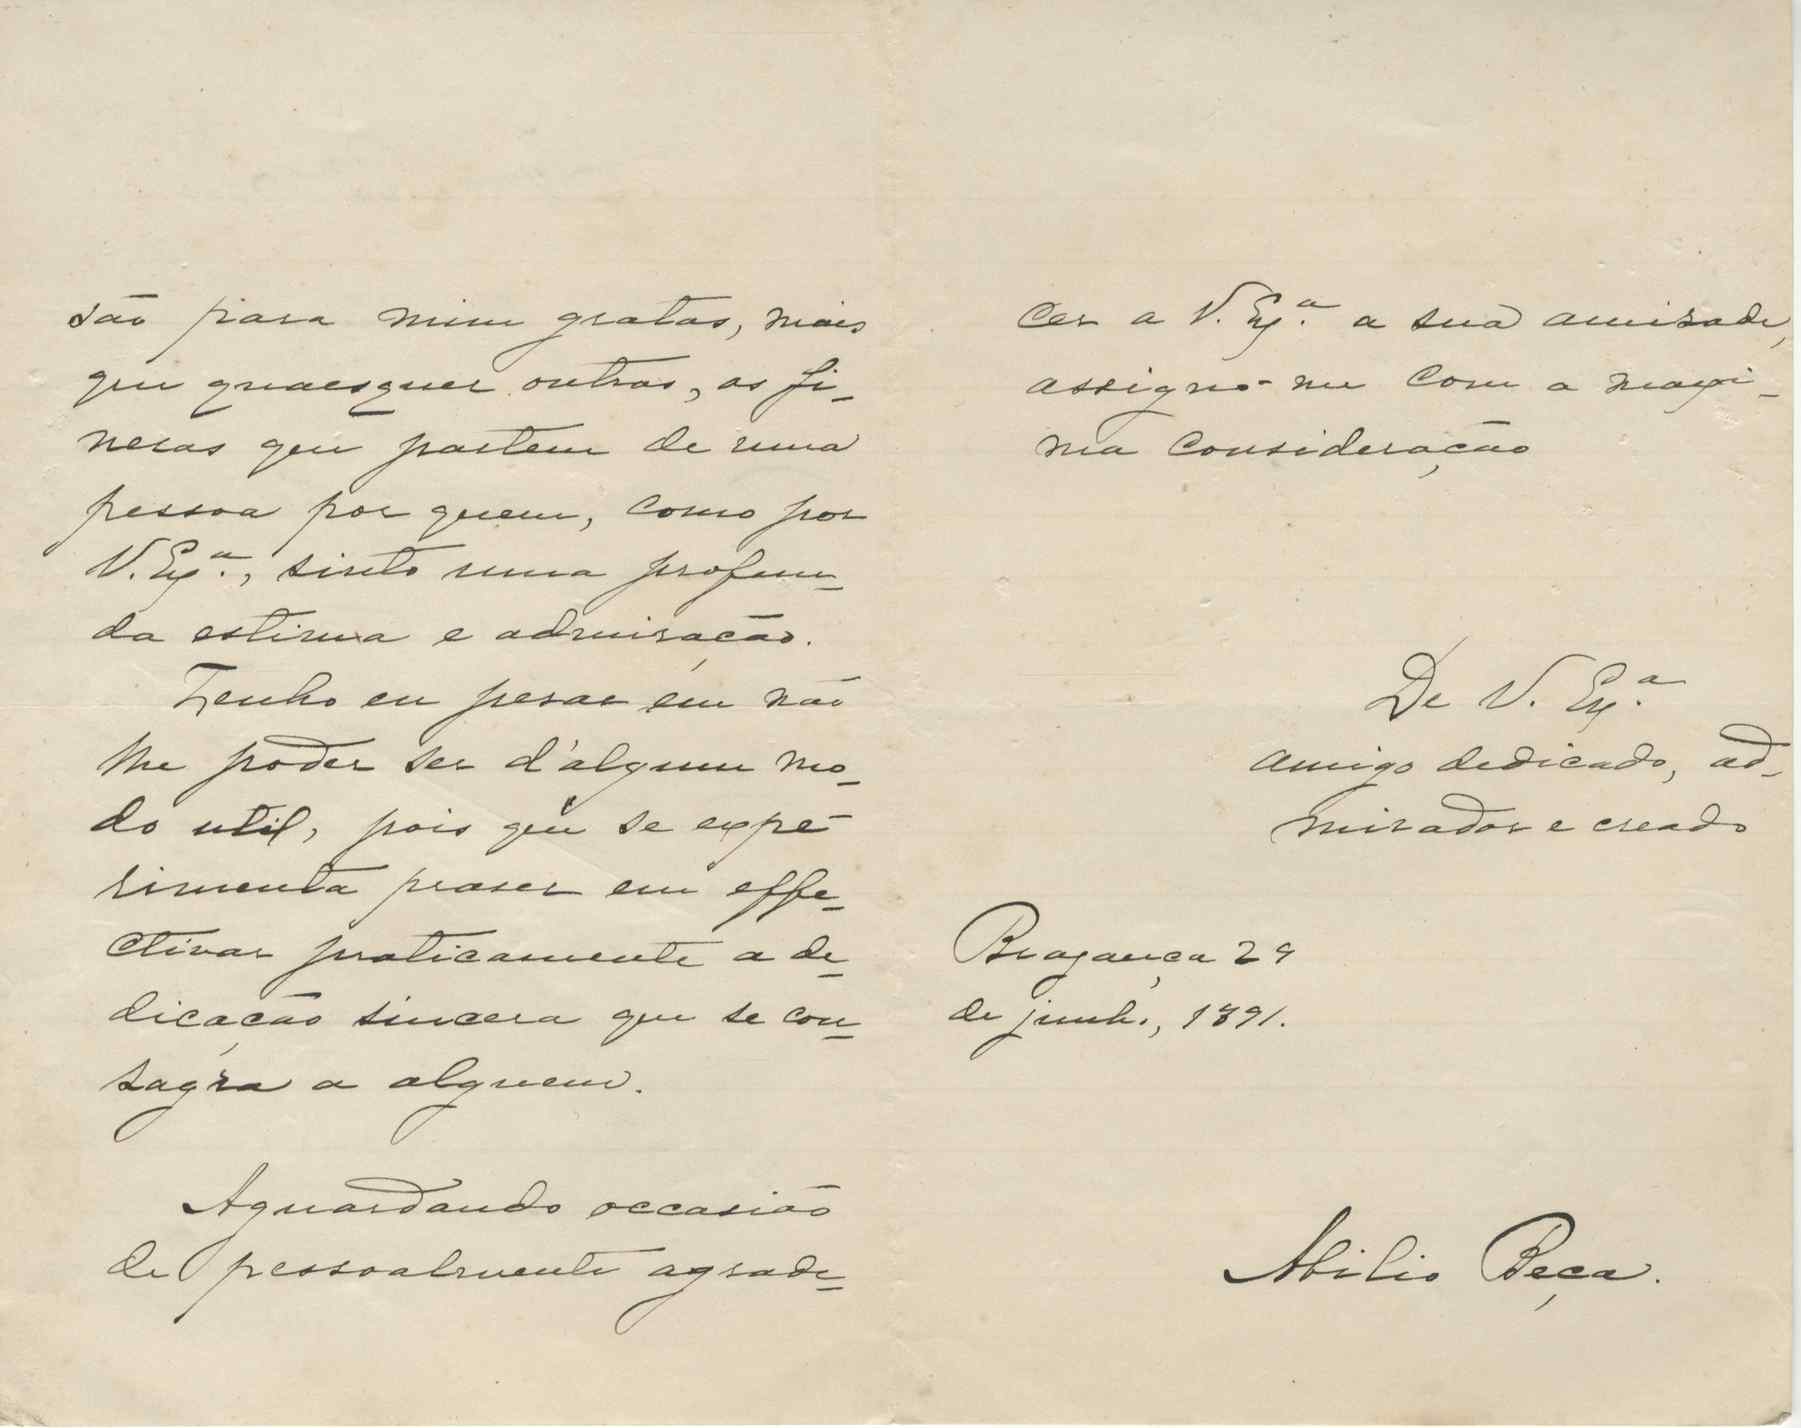 são para mim gratas, mais
que quaesquer outras, as fi-
nezas que partem de uma
pessoa por quem, como por
V. Ex.ª, sinto uma profun-
da estima e admiração.
Tenho eu pesar em não
lhe poder ser d'algum mo-
do util, pois que se expe-
rimenta praser em effe-
ctivar praticamente a de-
dicação sincera que se con-
sagra a alguem.
Aguardando occasião
de pessoalmente agrade-
cer a V. Ex.ª a sua amizade,
assigno-me com a maxi-
ma consideração
De V. Ex.ª
amigo dedicado, ad-
mirador e creado
Bragança 29
de junho, 1891.
Abilio Beça.